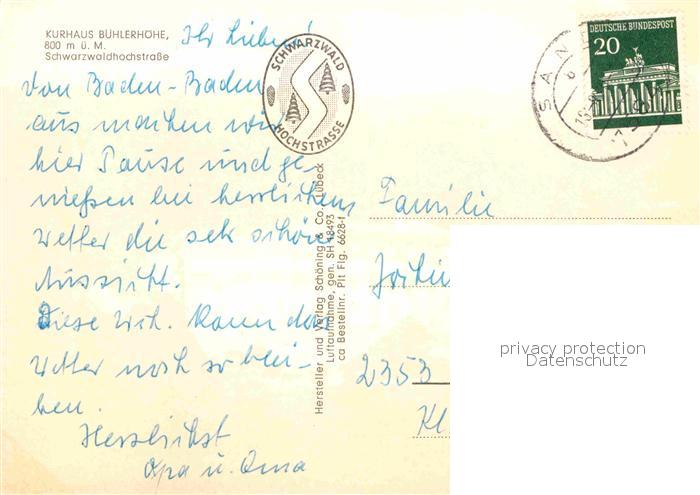 KURHAUS BÜHLERHÖHE,
800 m ü. M.
Schwarzwaldhochstraße
Ihr Lieben!
Von Baden-Baden
aus machen wir
hier Pause und ge-
nießen bei herrlichem
Wetter die sehr schöne
Aussicht.
Diese Wch. kann das
Wetter noch so blei-
ben.
Herzlichst
Opa u. Oma
SCHWARZWALD
HOCHSTRASSE
Hersteller und Verlag Schöning & Co., Lübeck
Luftaufnahme, gen. SH 18493
ca Bestellnr. Plt Flg. 6628-f
DEUTSCHE BUNDESPOST
20
Familie
2353
privacy protection
Datenschutz